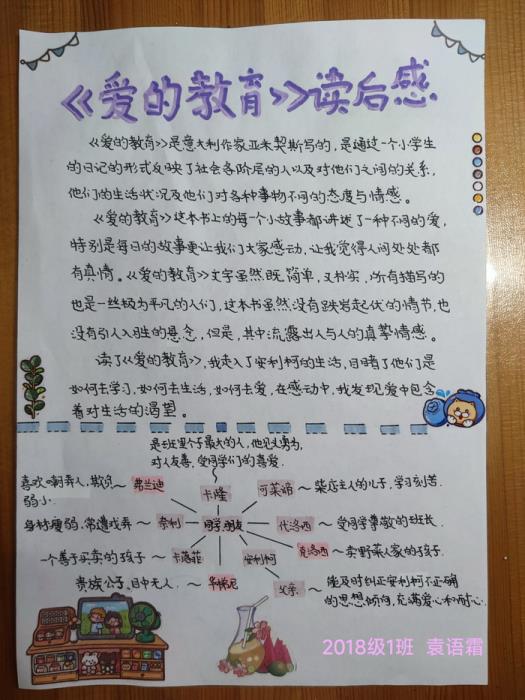 《爱的教育》读后感
《爱的教育》是意大利作家亚米契斯写的,是通过一个小学生
的日记的形式反映了社会各阶层的人以及对他们之间的关系,
他们的生活状况及他们对各种事物不同的态度与情感。
《爱的教育》这本书上的每一个小故事都讲述了一种不同的爱,
特别是每日的故事更让我们大家感动,让我觉得人间处处都
有真情。《爱的教育》文字虽然既简单,又朴实,所有描写的
也是一些极为平凡的人们,这本书虽然没有跌宕起伏的情节,也
没有引人入胜的悬念,但是,其中流露出人与人的真挚情感。
读了《爱的教育》,我走入了安利柯的生活,目睹了他们是
如何去学习,如何去生活,如何去爱,在感动中,我发现爱中包含
着对生活的渴望。
是班里个子最大的人,他见义勇为,
对人友善,受同学们的喜爱.
喜欢嘲弄人,欺负~弗兰迪
弱小.
卡隆
可莱谛~柴店主人的儿子,学习刻苦.
身材瘦弱,常遭戏弄~奈利
同学,朋友
代洛西~受同学尊敬的班长.
一个善于买卖的孩子~卡洛菲
安利柯
克洛西~卖野菜人家的孩子.
贵族公子,目中无人.~华梯尼
父亲~能及时纠正安利柯不正确
的思想倾向,充满爱心和耐心.
2018级1班 袁语霜